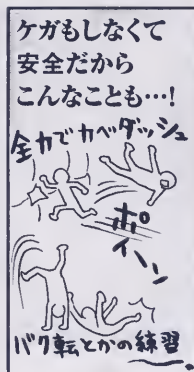 ケガもしなくて
安全だから
こんなことも…!
全力でカベダッシュ
ポイーン
バク転とかの練習